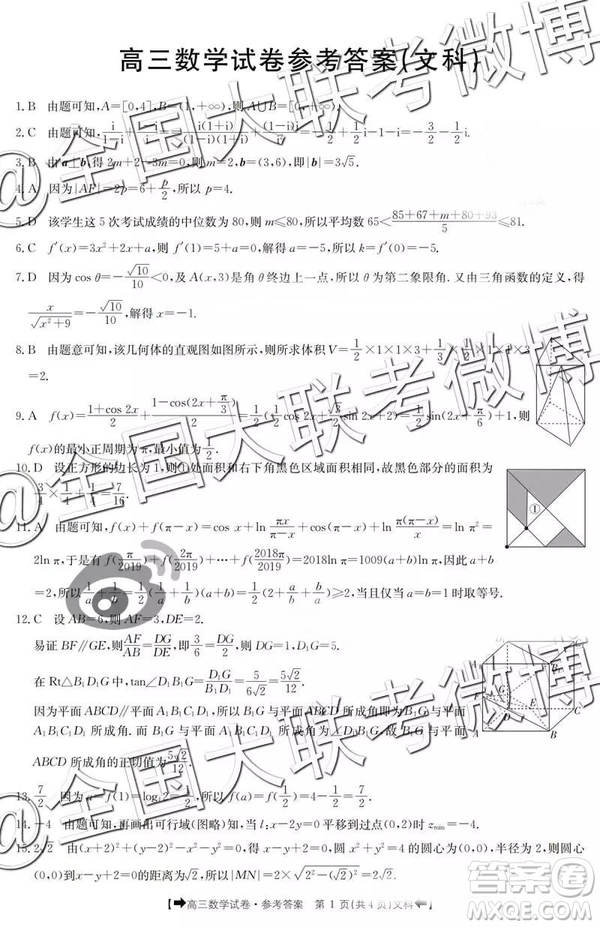 高三数学试卷参考答案(文科)
1. B 由题可知,A=[0,4],B=(1,+∞),则A∪B=[0,+∞).
2. C 由题可知,
3. B 由a⊥b,得2m+2-3m=0,则m=2,b=(3,6),即|b|=3√5.
4. A 因为|AF|=2p=6+p/2,所以p=4.
5. D 该学生这5次考试成绩的中位数为80,则m≤80,所以平均数65<(85+67+m+80+93)/5≤81.
6. C f′(x)=3x²+2x+a,则f′(1)=5+a=0,解得a=-5,所以f′(0)=-5.
7. D 因为cos θ=-√10/10<0,及A(x,3)是角θ终边上一点,所以θ为第二象限角.又由三角函数的定义,得
x/√(x²+9)=-√10/10,解得x=-1.
8. B 由题意可知,该几何体的直观图如图所示,则所求体积V=1/2×1×1×3+1/3×1/2×1×3×1
=2.
9. A f(x)=(1+cos 2x)/2+(1-cos(2x+π/3))/2=1/2(1/2cos 2x+√3/2sin 2x)+1=1/2sin(2x+π/6)+1,则
f(x)的最小正周期为π,最小值为1/2.
10. D 设正方形的边长为1,则①处面积和右下角黑色区域面积相同,故黑色部分的面积为
11. A 由题可知,f(x)+f(π-x)=cos x+ln πx/(π-x)+cos(π-x)+ln π(π-x)/x=
2ln π,于是有f(π/2019)+f(2π/2019)+…+f(2018π/2019)=2018ln π=1009(a+b)ln π,因此a+b
=2,所以1/a+1/b=1/2(1/a+1/b)(a+b)=1/2(2+a/b+b/a)≥2,当且仅当a=b=1时取等号.
12. C 设AB=6,则AF=3,DE=2.
易证BF∥GE,则AF/AB=DG/DE,即3/6=DG/2,则DG=1,D₁G=5.
在Rt△B₁D₁G中,tan∠D₁B₁G=D₁G/B₁D₁=5/(6√2)=5√2/12.
因为平面ABCD∥平面A₁B₁C₁D₁,所以B₁G与平面ABCD所成角即为B₁G与平面
A₁B₁C₁D₁所成角.而B₁G与平面A₁B₁C₁D₁所成角为∠D₁B₁G,所以B₁G与平面
ABCD所成角的正切值为5√2/12.
13. 7/2 因为a=f(1)=log₂2-1/2=1/2,所以f(a)=f(1/2)=4-1/2=7/2.
14. -4 由题可知,画出可行域(图略)知,当l:x-2y=0平移到过点(0,2)时z_min=-4.
15. 2√2 由(x+2)²+(y-2)²=4和x²+y²=4,得x-y+2=0,圆x²+y²=4的圆心为(0,0),半径为2,则圆心
(0,0)到x-y+2=0的距离d=2/√2=√2,所以|MN|=2×√(2²-(√2)²)=2√2.
高三数学试卷·参考答案 第1页(共4页)文科
@全国大联考微博
@全国大联考微博
@全国大联考微博
答案圈